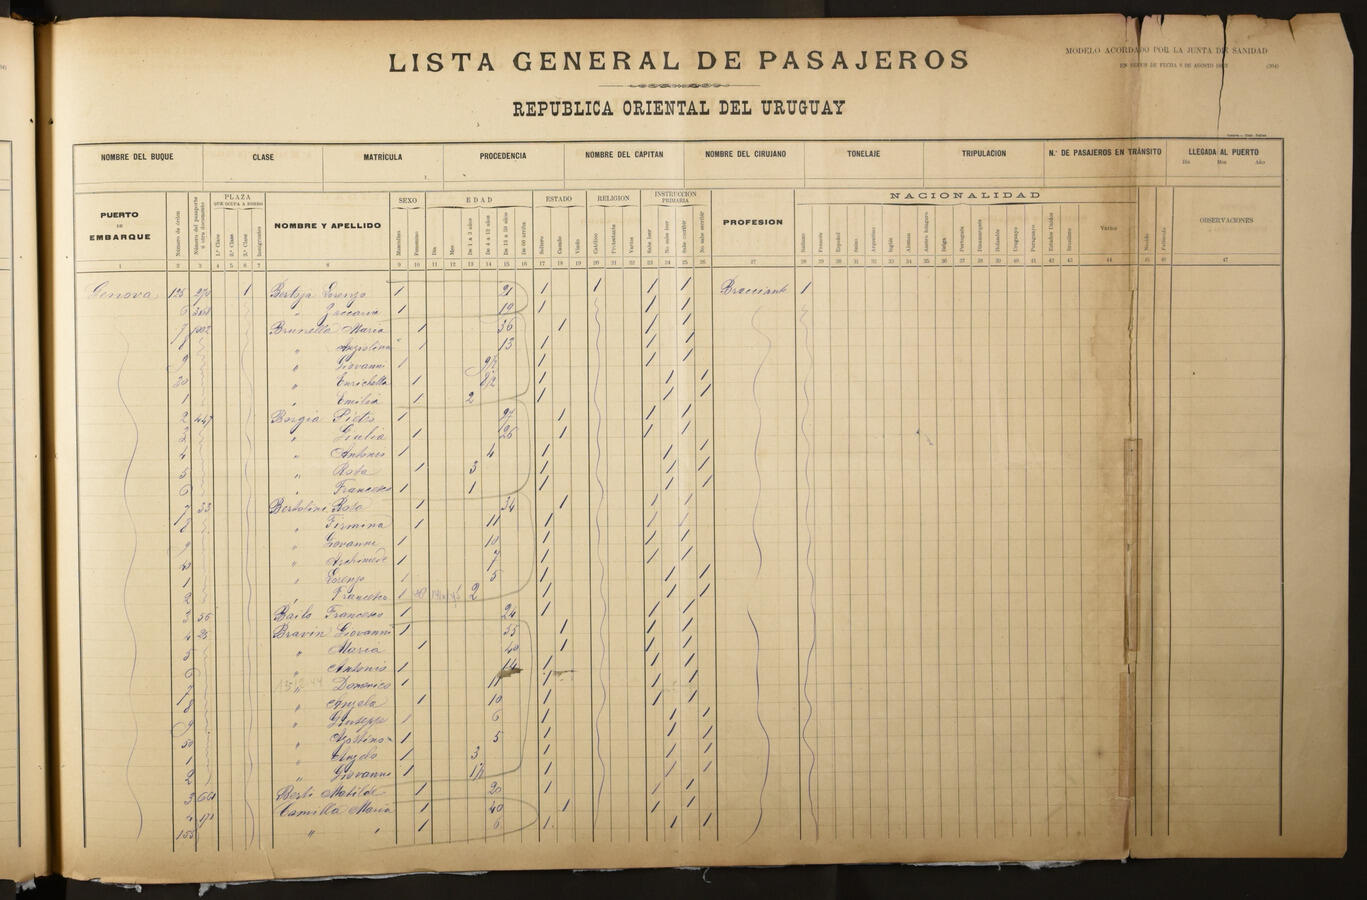 LISTA GENERAL DE PASAJEROS
MODELO ACORDADO POR LA JUNTA DE SANIDAD
REPUBLICA ORIENTAL DEL URUGUAY
NOMBRE DEL BUQUE CLASE MATRÍCULA PROCEDENCIA NOMBRE DEL CAPITAN NOMBRE DEL CIRUJANO TONELAJE TRIPULACION N.º DE PASAJEROS EN TRÁNSITO LLEGADA AL PUERTO
Dia Mes Año
PUERTO DE EMBARQUE
Número de órden
PLAZA QUE OCUPA A BORDO
1.ª Clase 2.ª Clase 3.ª Clase Inmigrantes
NOMBRE Y APELLIDO
SEXO
Masculino Femenino
EDAD
Dia Mes De 1 a 3 años De 4 a 12 años De 13 a 59 años De 60 arriba
ESTADO
Soltero Casado Viudo
RELIGION
Católico Protestante Varias
INSTRUCCIÓN PRIMARIA
Sabe leer No sabe leer Sabe escribir No sabe escribir
PROFESION
NACIONALIDAD
Italiano Francés Español Suizo Argentino Inglés Aleman Austro-húngaro Belga Portugués Dinamarqués Holandés Uruguayo Paraguayo Estados Unidos Brasilero Varios
OBSERVACIONES
1 2 3 4 5 6 7 8 9 10 11 12 13 14 15 16 17 18 19 20 21 22 23 24 25 26 27 28 29 30 31 32 33 34 35 36 37 38 39 40 41 42 43 44 45 46 47
Genova 125 270 1 Bertoja Lorenzo 21 Bracciante
6 " Zaccaria 19
7 Brunella Maria 36
8 " Angiolina 13
9 " Giovanni
30 " Enrichetta
1 " Emilia 2
2 447 Borgia Pietro
3 " Giulia 26
4 " Antonio 4
5 " Rosa 3
6 " Francesco 1
7 33 Bertolini Rosa 34
8 " Firmina 11
9 " Giovanni 10
40 " Archimede 7
1 " Lorenzo 5
2 " Francesco 2
3 56 Bailo Francesco 24
4 25 Bravin Giovanni 55
5 " Maria 40
6 " Antonio 14
7 " Domenico 11
8 " Angela 10
9 " Giuseppe 6
50 " Agostino 5
1 " Angelo 3
2 " Giovanni
3 661 Berti Matilde 20
4 Camilla Maria 40
155 " " 6